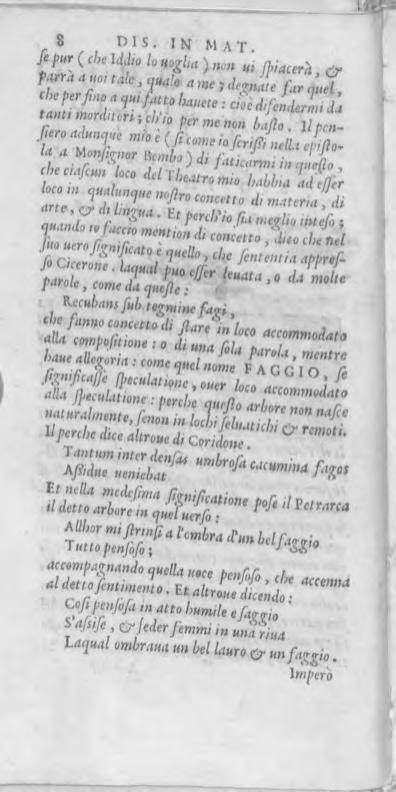 8 DIS. IN MAT.
ſe pur (che Iddio lo uoglia) non ui ſpiacerà, &
parrà a uoi tale, quale a me; degnate far quel,
che per fino a qui fatto hauete: cioè difendermi da
tanti morditori; ch'io per me non baſto. Il pen-
ſiero adunque mio è (ſi come io ſcriſsi nella epiſto-
la a Monſignor Bembo) di faticarmi in queſto,
che ciaſcun loco del Theatro mio habbia ad eſſer
loco in qualunque noſtro concetto di materia, di
arte, & di lingua. Et perch'io ſia meglio inteſo;
quando io faccio mention di concetto, dico che nel
ſuo uero ſignificato è quello, che ſententia appreſ-
ſo Cicerone. laqual puo eſſer leuata, o da molte
parole, come da queſte:
Recubans ſub tegmine fagi,
che fanno concetto di ſtare in loco accommodato
alla compoſitione: o di una ſola parola, mentre
haue allegoria: come quel nome FAGGIO, ſe
ſignificaſſe ſpeculatione, ouer loco accommodato
alla ſpeculatione: perche queſto arbore non naſce
naturalmente, ſenon in lochi ſeluatichi & remoti.
Il perche dice altroue di Coridone.
Tantum inter denſas umbroſa cacumina fagos
Aſsidue ueniebat
Et nella medeſima ſignificatione poſe il Petrarca
il detto arbore in quel uerſo:
Allhor mi ſtrinſi a l'ombra d'un bel faggio
Tutto penſoſo;
accompagnando quella uoce penſoſo, che accenna
al detto ſentimento. Et altroue dicendo:
Coſi penſoſa in atto humile e ſaggio
S'aſsiſe, & ſeder femmi in una riua
Laqual ombraua un bel lauro & un faggio.
Imperò